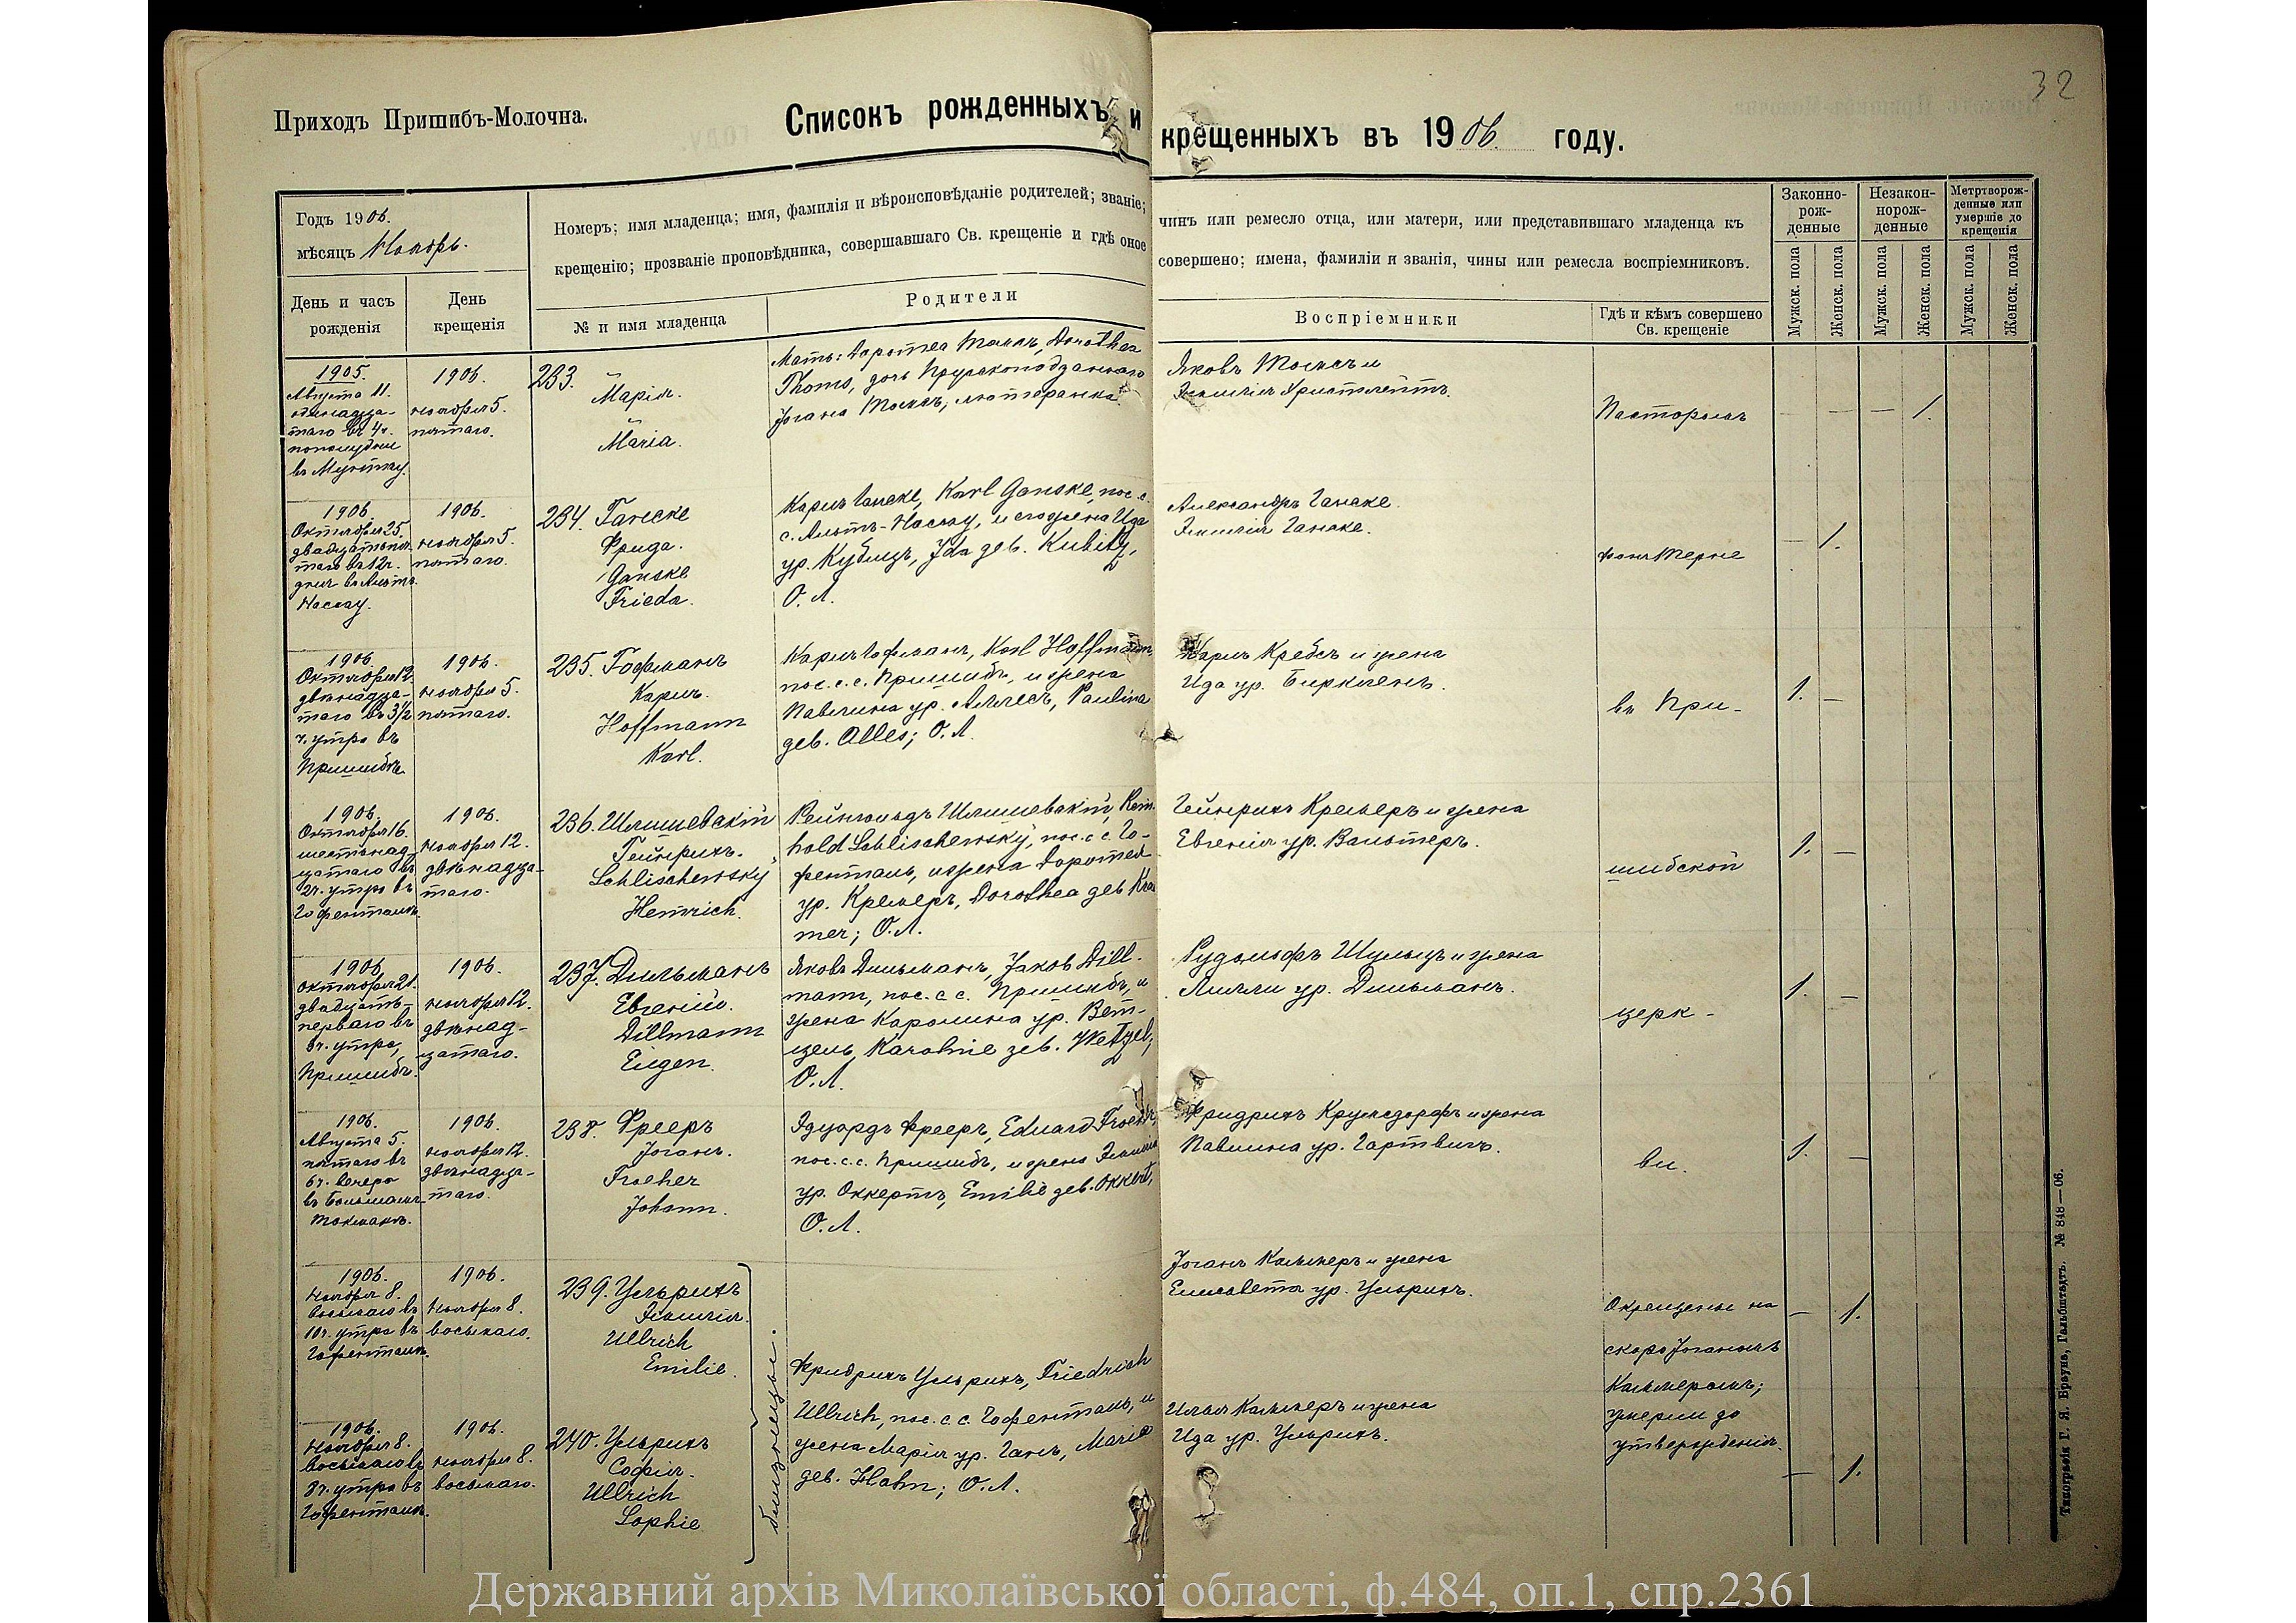 32
Приходъ Пришибъ-Молочна.
Списокъ рожденныхъ и крещенныхъ въ 1906. году.
Годъ 1906.
мѣсяцъ Ноябрь.
Номеръ; имя младенца; имя, фамилія и вѣроисповѣданіе родителей; званіе; чинъ или ремесло отца, или матери, или представившаго младенца къ
крещенію; прозваніе проповѣдника, совершавшаго Св. крещеніе и гдѣ оное совершено; имена, фамиліи и званія, чины или ремесла воспріемниковъ.
Законно-
рож-
денные
Незакон-
норож-
денные
Метртворож-
денные или
умершіе до
крещенія
День и часъ
рожденія
День
крещенія
№ и имя младенца
Родители
Воспріемники
Гдѣ и кѣмъ совершено
Св. крещеніе
Мужск. пола
Женск. пола
Мужск. пола
Женск. пола
Мужск. пола
Женск. пола
1905.
Августа 11.
одинадца-
таго въ 4ч.
пополудни
1906.
ноября 5.
пятаго.
233.
Марія.
Maria.
Мать: Доротеа Томсъ, Dorothea
Thoms, дочь Прускоподданнаго
Іогана Томсъ, лютеранка.
Яковъ Томсъ и
Эмилія
Пасторомъ
— — — 1.
1906.
Октября 25.
двадцатьпя-
таго въ 12ч.
дня въ Альтъ-
Нассау.
1906.
ноября 5.
пятаго.
234. Ганске
Фрида.
Ganske
Frieda.
Карлъ Ганске, Karl Ganske, пос. с.
с. Альтъ-Нассау, и его жена Ида
ур. Кубицъ, Ida geb. Kubitz,
О. Л.
Александръ Ганске.
Эмилія Ганске.
фонъ Терне
— 1.
1906.
Октября 12.
двѣнадца-
таго въ 3½
ч. утра въ
Пришибѣ.
1906.
ноября 5.
пятаго.
235. Гофманъ
Карлъ.
Hoffmann
Karl.
Карлъ Гофманъ, Karl Hoffmann,
пос. с. с. Пришибъ, и жена
Павлина ур. Аллесъ, Paulina
geb. Alles; О. Л.
Карлъ Кребсъ и жена
Ида ур. Биркленъ.
въ При-
1. —
1906.
Октября 16.
шестнад-
цатаго въ
2ч. утра въ
Гофенталѣ.
1906.
Ноября 12.
двѣнадца-
таго.
236. Шлишевскій
Гейнрихъ.
Schlischewsky
Heinrich.
Рейнгольдъ Шлишевскій, Rein-
hold Schlischewsky, пос. с. с. Го-
фенталь, и жена Доротея
ур. Кремеръ, Dorothea geb Krä
mer; О. Л.
Гейнрихъ Кремеръ и жена
Евгенія ур. Вальтеръ.
шибской
1. —
1906.
Октября 21.
двадцать-
перваго въ
утра,
Пришибъ.
1906.
ноября 12.
двѣнад-
цатаго.
237. Дильманъ
Евгеній.
Dillmann
Eugen.
Яковъ Дильманъ, Jakob Dill-
mann, пос. с. с. Пришибъ, и
жена Каролина ур. Вет-
цель, Karoline geb. Wetzel;
О. Л.
Рудольфъ Шульцъ и жена
Лилли ур. Дильманъ.
церк-
1. —
1906.
Августа 5.
пятаго въ
6ч. вечера
въ Большомъ-
Токмакѣ.
1906.
ноября 12.
двѣнадца-
таго.
238. Фрееръ
Іоганъ.
Froeher
Johann.
Эдуардъ Фрееръ, Eduard Froeher,
пос. с. с. Пришибъ, и жена Эмилія
ур. Оккертъ, Emilie geb. Okkert,
О. Л.
Фридрихъ Крумсдорфъ и жена
Павлина ур. Гартвигъ.
ви.
1. —
1906.
Ноября 8.
восьмаго въ
10ч. утра въ
Гофенталѣ.
1906.
Ноября 8.
восьмаго.
239. Ульрихъ
Эмилія.
Ullrich
Emilie.
близнецы.
Фридрихъ Ульрихъ, Friedrich
Ullrich, пос. с. с. Гофенталь, и
жена Марія ур. Ганъ, Marie
geb. Hahn; О. Л.
Іоганъ Кальмеръ и жена
Елисавета ур. Ульрихъ.
Окрещены на
скоро Іоганомъ
Кальмеромъ;
умерли до
утвержденія.
— 1.
1906.
Ноября 8.
восьмаго въ
8ч. утра въ
Гофенталѣ.
1906.
ноября 8.
восьмаго.
240. Ульрихъ
Софія.
Ullrich
Sophie
Кальмеръ и жена
Ида ур. Ульрихъ.
— 1.
Типографія Г. Я. Брауна, Гальбштадтъ. № 848—06.
Державний архів Миколаївської області, ф.484, оп.1, спр.2361